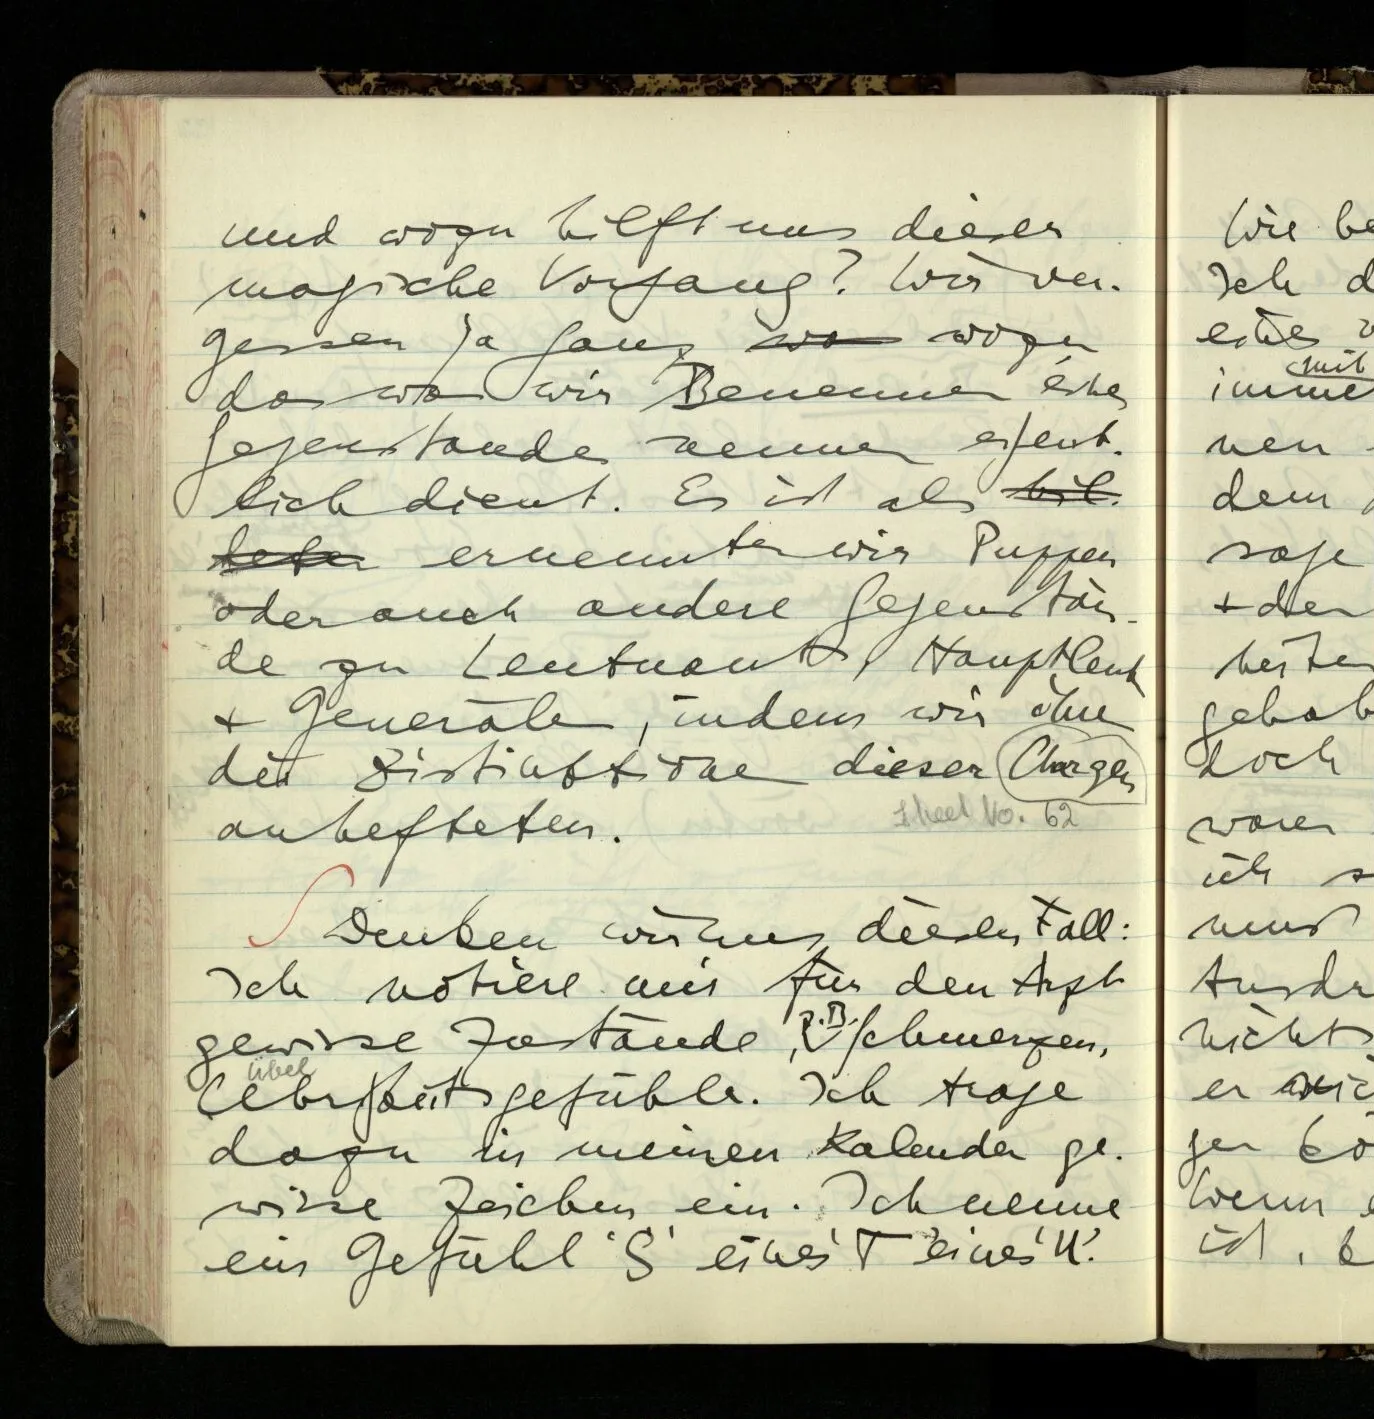 und wozu hilft uns dieser
magische Vorgang? Wir ver-
gessen ja ganz wo wozu
das was wir Benennen eines
Gegenstandes nennen eigent-
lich dient. Es ist als
ernennten wir Puppen
oder auch andere Gegenstän-
de zu Leutnants, Hauptleut
+ Generälen, indem wir ihne
die Distinktione dieser Chargen
anhefteten.
Sheet No. 62
Denken wir uns diesen Fall:
Ich notiere mir für den Arzt
gewisse Zustände, z.B. Schmerzen,
übel
gefühle. Ich trage
dazu in meinen Kalender ge-
wisse Zeichen ein. Ich nenne
ein Gefühl 'S' eines 'T' eines 'U'.
Wie be
Ich d
eines
mit
imme
nen
dem
sage
+ der
gehab
doch
waren
ich s
uns
Ausdr
nichts
er
Wenn e
ist,